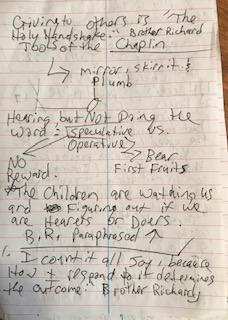 Giving to others is "The
Holy Handshake." Brother Richard
Tools of the Chaplin
↳ Mirror, skirrit &
Plumb
Hearing but Not Doing the
Word = Speculative vs.
Operative
NO
Reward.
Bear
First Fruits
*The Children are watching us
and Figuring out if we
are Hearers or Doers.
B.R. Paraphrased ↑
I count it all Joy, because
How I respond to it determines
the outcome." Brother Richard